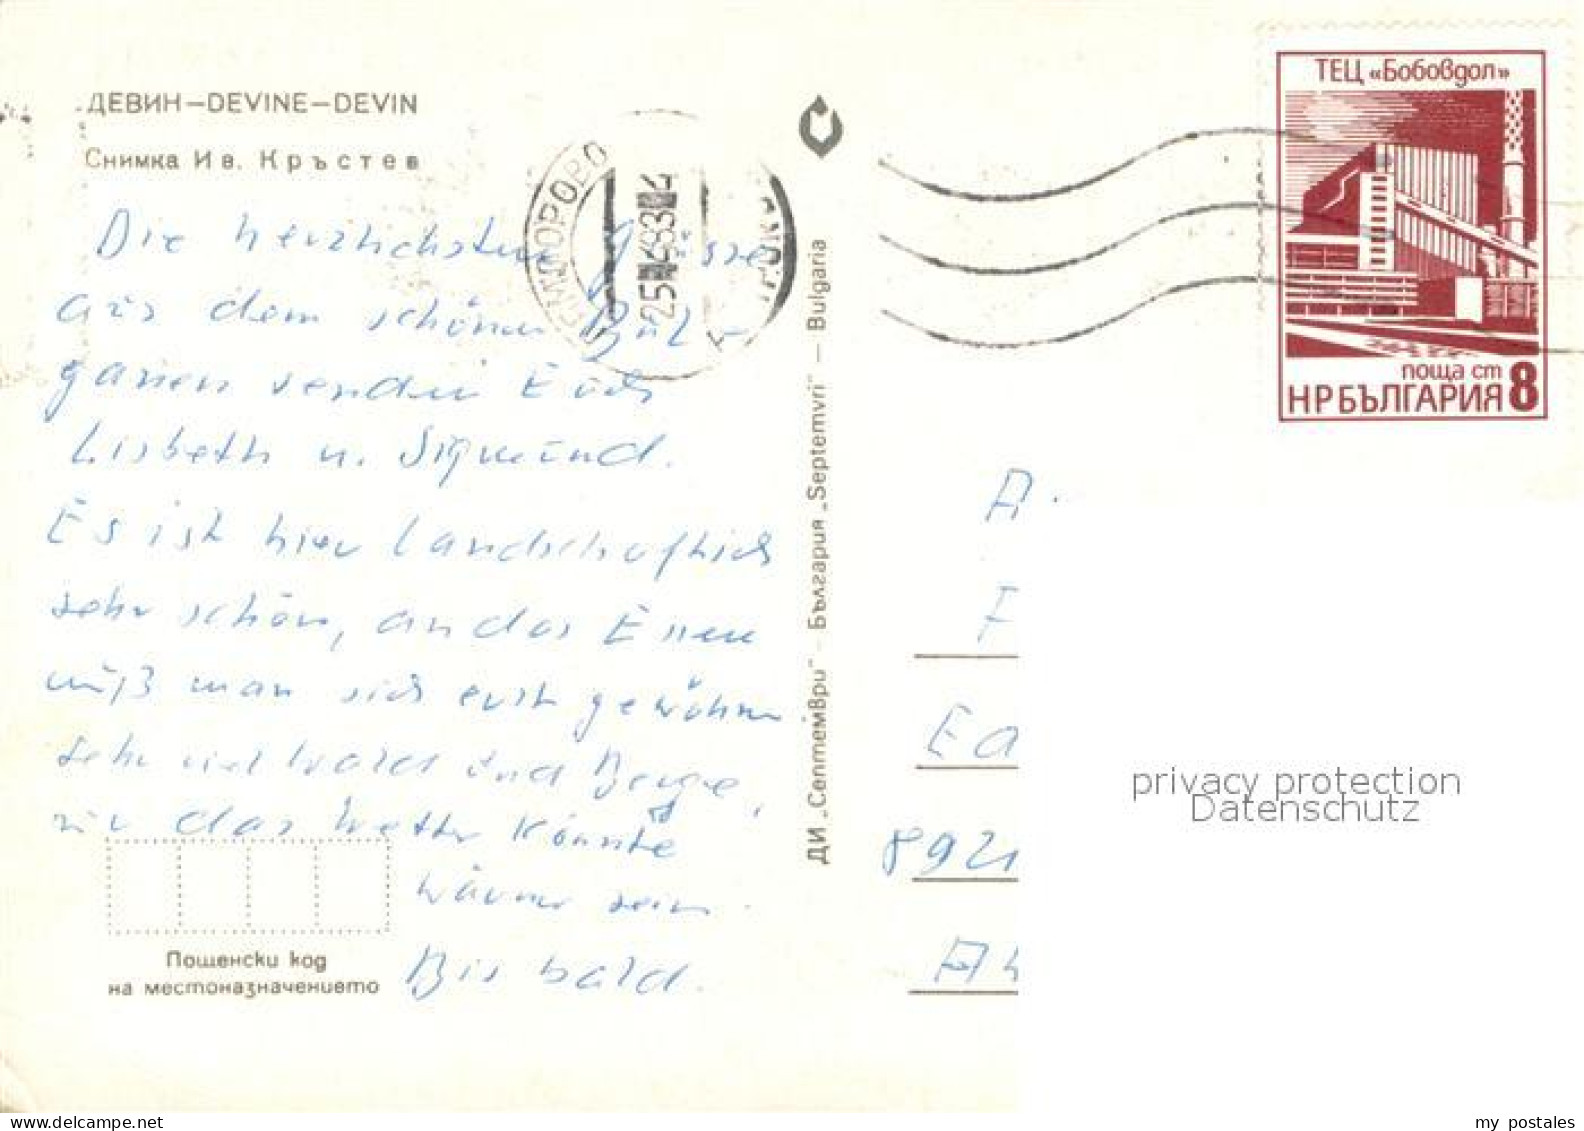 ДЕВИН–DEVINE–DEVIN
Снимка Ив. Кръстев
Die herzlichsten Grüsse
aus dem schönen Bul-
garien senden Euch
Lisbeth u. Sigmund.
Es ist hier landschaftlich
sehr schön, an das Essen
muß man sich erst gewöhnen.
Sehr viel Wald und Berge,
nur das Wetter könnte
wärmer sein.
Bis bald.
Пощенски код
на местоназначението
ДИ „Септември" – България „Septemvri" – Bulgaria
25 4 83
ТЕЦ «Бобовдол»
поща ст 8
НР БЪЛГАРИЯ
A.
F
Ea
892
privacy protection
Datenschutz
my postales